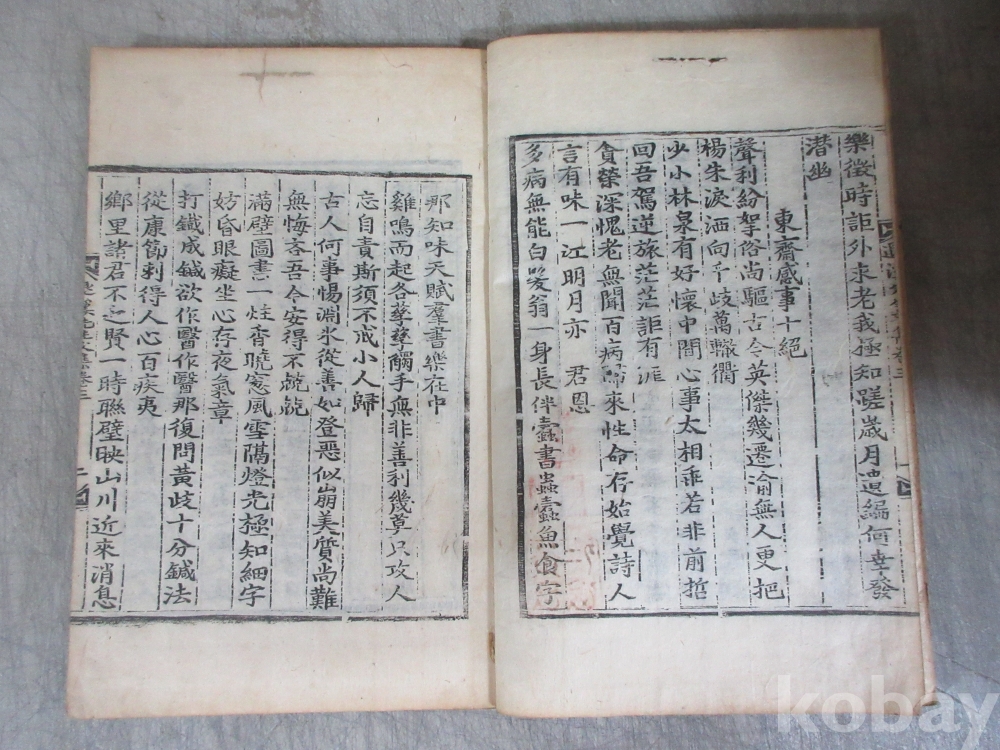 樂徵時詎外求老我極知蹉歲月遺編何幸發
潛幽
東齋感事十絕
聲利紛挐俗尚驅古今英傑幾遷渝無人更把
楊朱淚洒向千歧萬轍衢
少小林泉有好懷中間心事太相乖若非前哲
回吾駕逆旅茫茫詎有涯
貪榮深愧老無聞百病歸來性命存始覺詩人
言有味一江明月亦 君恩
多病無能白髮翁一身長伴蠹書蟲蠹魚食字
那知味天賦羣書樂在中
雞鳴而起各孳孳觸手無非善利幾莫只攻人
忘自責斯須不戒小人歸
古人何事惕淵氷從善如登惡似崩美質尚難
無悔吝吾今安得不兢兢
滿壁圖書一炷香曉窓風雪隔燈光極知細字
妨昏眼癡坐心存夜氣章
打鐵成鍼欲作醫作醫那復問黃歧十分鍼法
從康節刺得人心百疾夷
鄉里諸君不乏賢一時聯璧映山川近來消息
kobay